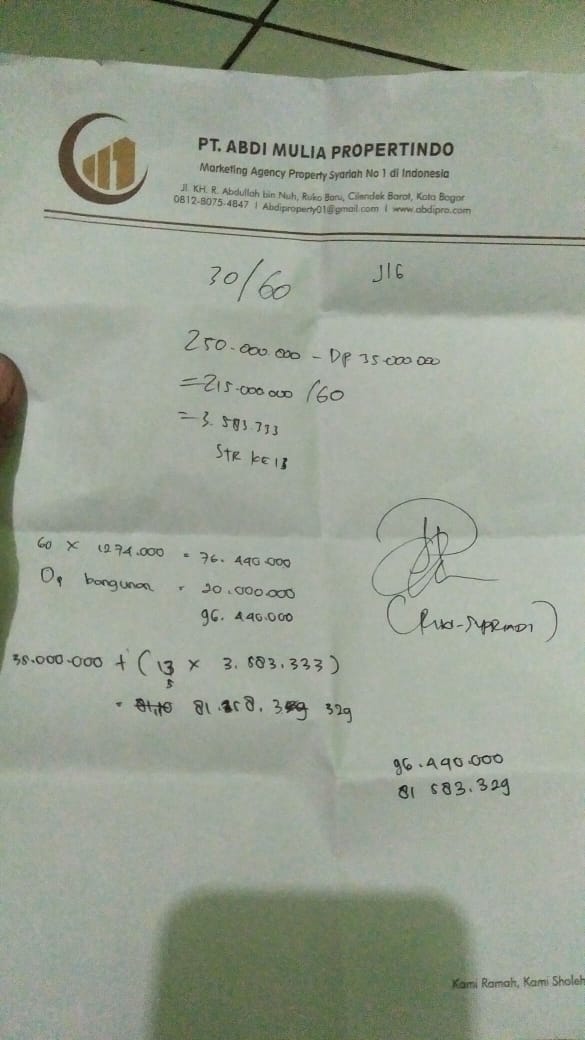 PT. ABDI MULIA PROPERTINDO
Marketing Agency Property Syariah No 1 di Indonesia
Jl. KH. R. Abdullah bin Nuh, Ruko Baru, Cilendek Barat, Kota Bogor
0812-8075-4847 | Abdiproperty01@gmail.com | www.abdipro.com
30/60 J16
250.000.000 - DP 35.000.000
= 215.000.000 /60
= 3.583.333
STR KE 13
60 x 1274.000 = 76.440.000
DP bangunan = 20.000.000
96.440.000
35.000.000 + (13 x 3.583.333)
= 81. 8.3 329
96.440.000
81 583.329
Kami Ramah, Kami Sholeh